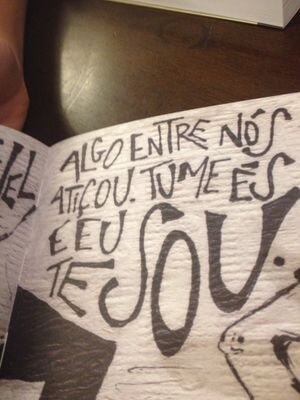 ALGO ENTRE NÓS
ATIÇOU. TU ME ÉS
E EU
TE SOU.